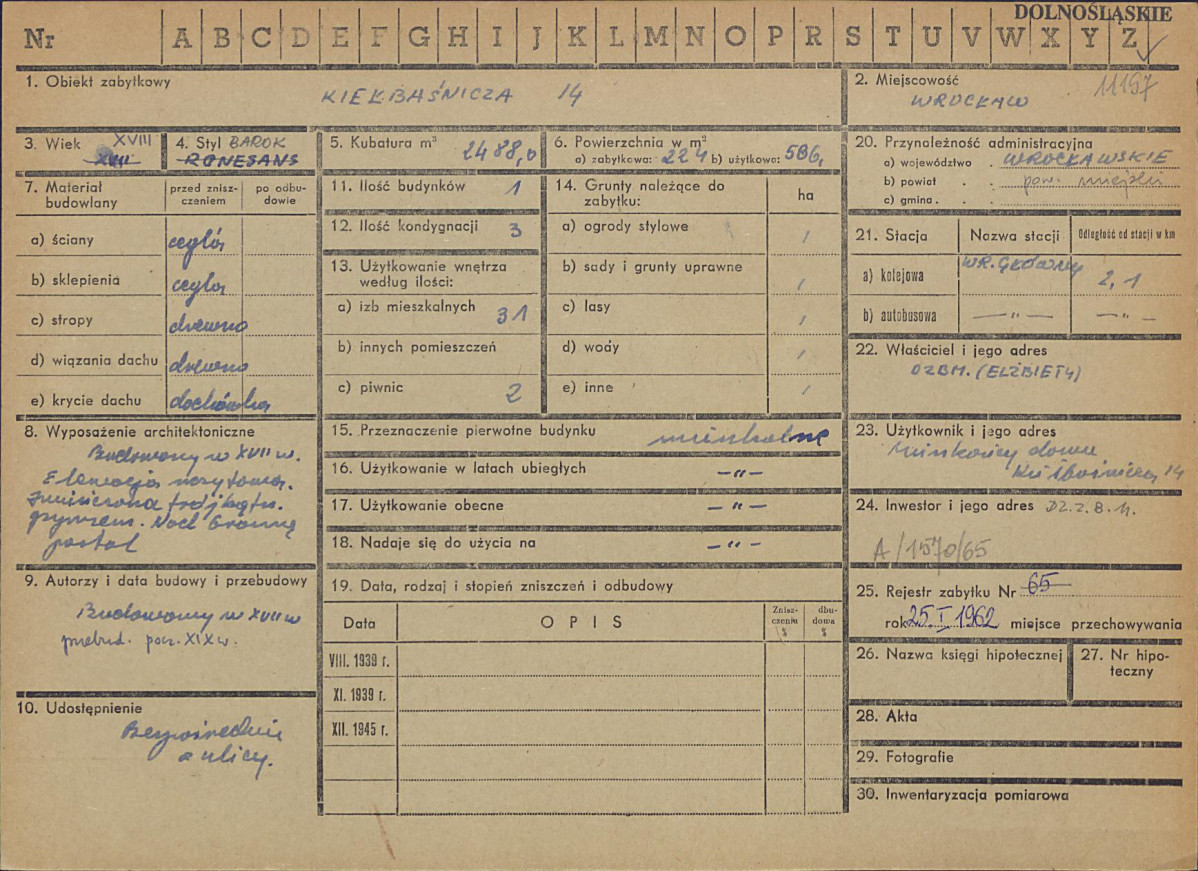 DOLNOŚLĄSKIE
Nr A B C D E F G H I J K L M N O P R S T U V W X Y Z
1. Obiekt zabytkowy
KIEŁBAŚNICZA 14
2. Miejscowość
11157
WROCŁAW
3. Wiek XVIII
XVII
4. Styl BAROK
RENESANS
5. Kubatura m³ 2488,0
6. Powierzchnia w m²
a) zabytkowa: 224 b) użytkowa: 586,
7. Materiał budowlany
przed zniszczeniem
po odbudowie
a) ściany cegła
b) sklepienia cegła
c) stropy drewno
d) wiązania dachu drewno
e) krycie dachu dachówka
8. Wyposażenie architektoniczne
Budowany w XVII w.
Elewacja
zwieńczona trójkątn.
gzymsem. Nad bramą
portal
9. Autorzy i data budowy i przebudowy
Budowany w XVII w
przebud. pocz. XIX w.
10. Udostępnienie
Bezpośrednie
z ulicy.
11. Ilość budynków 1
12. Ilość kondygnacji 3
13. Użytkowanie wnętrza
według ilości:
a) izb mieszkalnych 31
b) innych pomieszczeń
c) piwnic 2
14. Grunty należące do
zabytku:
ha
a) ogrody stylowe /
b) sady i grunty uprawne /
c) lasy /
d) wody /
e) inne /
15. Przeznaczenie pierwotne budynku mieszkalne
16. Użytkowanie w latach ubiegłych — „ —
17. Użytkowanie obecne — „ —
18. Nadaje się do użycia na — „ —
19. Data, rodzaj i stopień zniszczeń i odbudowy
Data
OPIS
Znisz-
czeniu
%
dbu-
dowa
%
VIII. 1939 r.
XI. 1939 r.
XII. 1945 r.
20. Przynależność administracyjna
a) województwo . WROCŁAWSKIE
b) powiat . . pow. miejski
c) gmina . . .
21. Stacja
Nazwa stacji
Odległość od stacji w km
a) kolejowa WR. GŁÓWNY 2,1
b) autobusowa — „ — — „ —
22. Właściciel i jego adres
DZBM. (ELŻBIETY)
23. Użytkownik i jego adres
Mieszkańcy domu
Kiełbaśnicza 14
24. Inwestor i jego adres DZ.Z.B.M.
A/1570/65
25. Rejestr zabytku Nr 65
rok 25. I 1962 miejsce przechowywania
26. Nazwa księgi hipotecznej
27. Nr hipo-
teczny
28. Akta
29. Fotografie
30. Inwentaryzacja pomiarowa